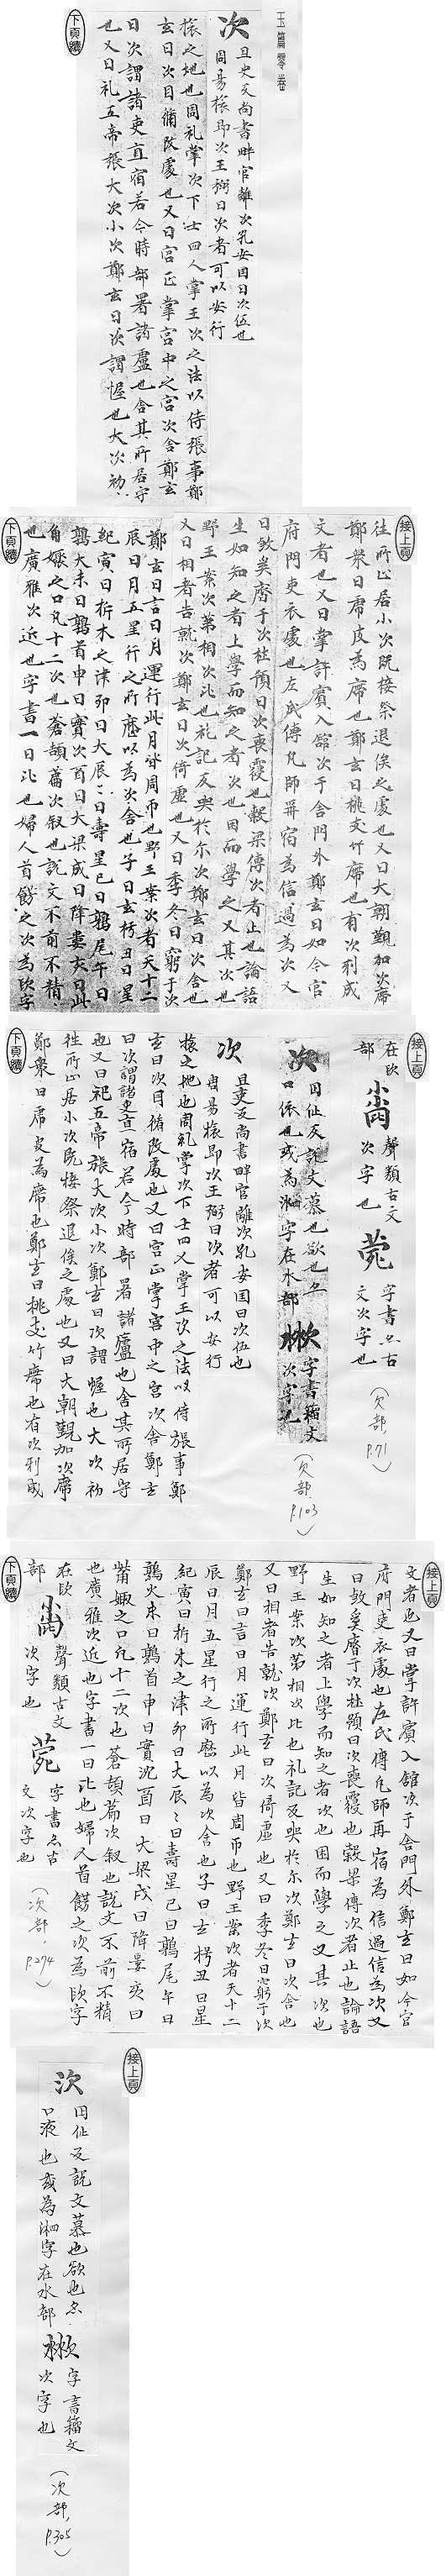 玉篇零卷
次 且史反尚書畔官離次孔安囯曰次伍也
周易旅即次王弼曰次者可以安行
旅之地也周礼掌次下士四人掌王次之法以待張事鄭
玄曰次自脩改處也又曰宮正掌宮中之宮次舍鄭玄
曰次謂諸吏直宿若今時部署諸廬也舍其所居寺
也又曰礼五帝張大次小次鄭玄曰次謂幄也大次初
下頁續
接上頁
往所止居小次既接祭退俟之處也又曰大朝覲加次席
鄭衆曰席皮為席也鄭玄曰桃支竹席也有次列成
文者也又曰掌訝賓入館次于舍門外鄭玄曰如今官
府門吏衣處也左氏傳凡師再宿為信過為次又
曰敢矣磨于次杜預曰次喪寢也穀梁傳次者止也論語
生如知之者上學而知之者次也困而學之又其次也
野王案次第相次比也礼記及興於尓次鄭玄曰次舍也
又曰相者告就次鄭玄曰次倚廬也又曰季冬日窮于次
鄭玄曰言日月運行此月皆周帀也野王案次者天十二
辰日月五星行之所歷以為次舍也子曰玄枵丑曰星
紀寅曰析木之津卯曰大辰〻曰壽星巳曰鶉尾午曰
鶉火未曰鶉首申曰實沈酉曰大梁戌曰降婁亥曰此
觜娵之口凡十二次也蒼頡篇次叙也說文不前不精
也廣雅次近也字書一曰比也婦人首餝之次為㰣字
下頁續
接上頁
在㰣
部 聲類古文
次字也 字書亦古
文次字也 (欠部, P.71)
㳄 囙仙反說文慕也欲也亦
口依也或為湺字在水部 字書籀文
次字也 (欠部, P.103)
次 且吏反尚書畔官離次孔安国曰次伍也
周易旅即次王弼曰次者可以安行
旅之地也周礼掌次下士四人掌王次之法以待張事鄭
玄曰次自脩改處也又曰宮正掌宮中之宮次舍鄭玄
曰次謂諸吏直宿若今時部署諸廬也舍其所居寺
也又曰祀五帝張大次小次鄭玄曰次謂幄也大次初
往所止居小次既接祭退俟之處也又曰大朝覲加次席
鄭衆曰席皮為席也鄭玄曰桃支竹席也有次列成
下頁續
接上頁
文者也又曰掌訝賓入館次于舍門外鄭玄曰如今官
府門吏衣處也左氏傳凡師再宿為信過信為次又
曰敢矣磨于次杜預曰次喪寢也穀梁傳次者止也論語
生如知之者上學而知之者次也困而學之又其次也
野王案次第相次比也礼記及興於尓次鄭玄曰次舍也
又曰相者告就次鄭玄曰次倚廬也又曰季冬日窮于次
鄭玄曰言日月運行此月皆周帀也野王案次者天十二
辰日月五星行之所歷以為次舍也子曰玄枵丑曰星
紀寅曰析木之津卯曰大辰〻曰壽星巳曰鶉尾午曰
鶉火未曰鶉首申曰實沈酉曰大梁戌曰降婁亥曰
觜娵之口凡十二次也蒼頡篇次叙也說文不前不精
也廣雅次近也字書一曰比也婦人首餝之次為㰣字
在㰣
部 聲類古文
次字也 字書亦古
文次字也 (次部, P.274)
下頁續
接上頁
㳄 囙仙反說文慕也欲也亦
口液也或為湺字在水部 字書籀文
次字也 (次部, P.305)